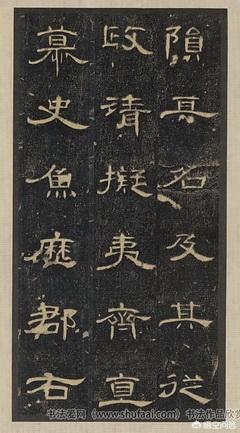 隕其名及其從
政清擬夷齊直
慕史魚歷郡右
书法爱网 (www.shufaai.com) 书法作品欣
悟空问答